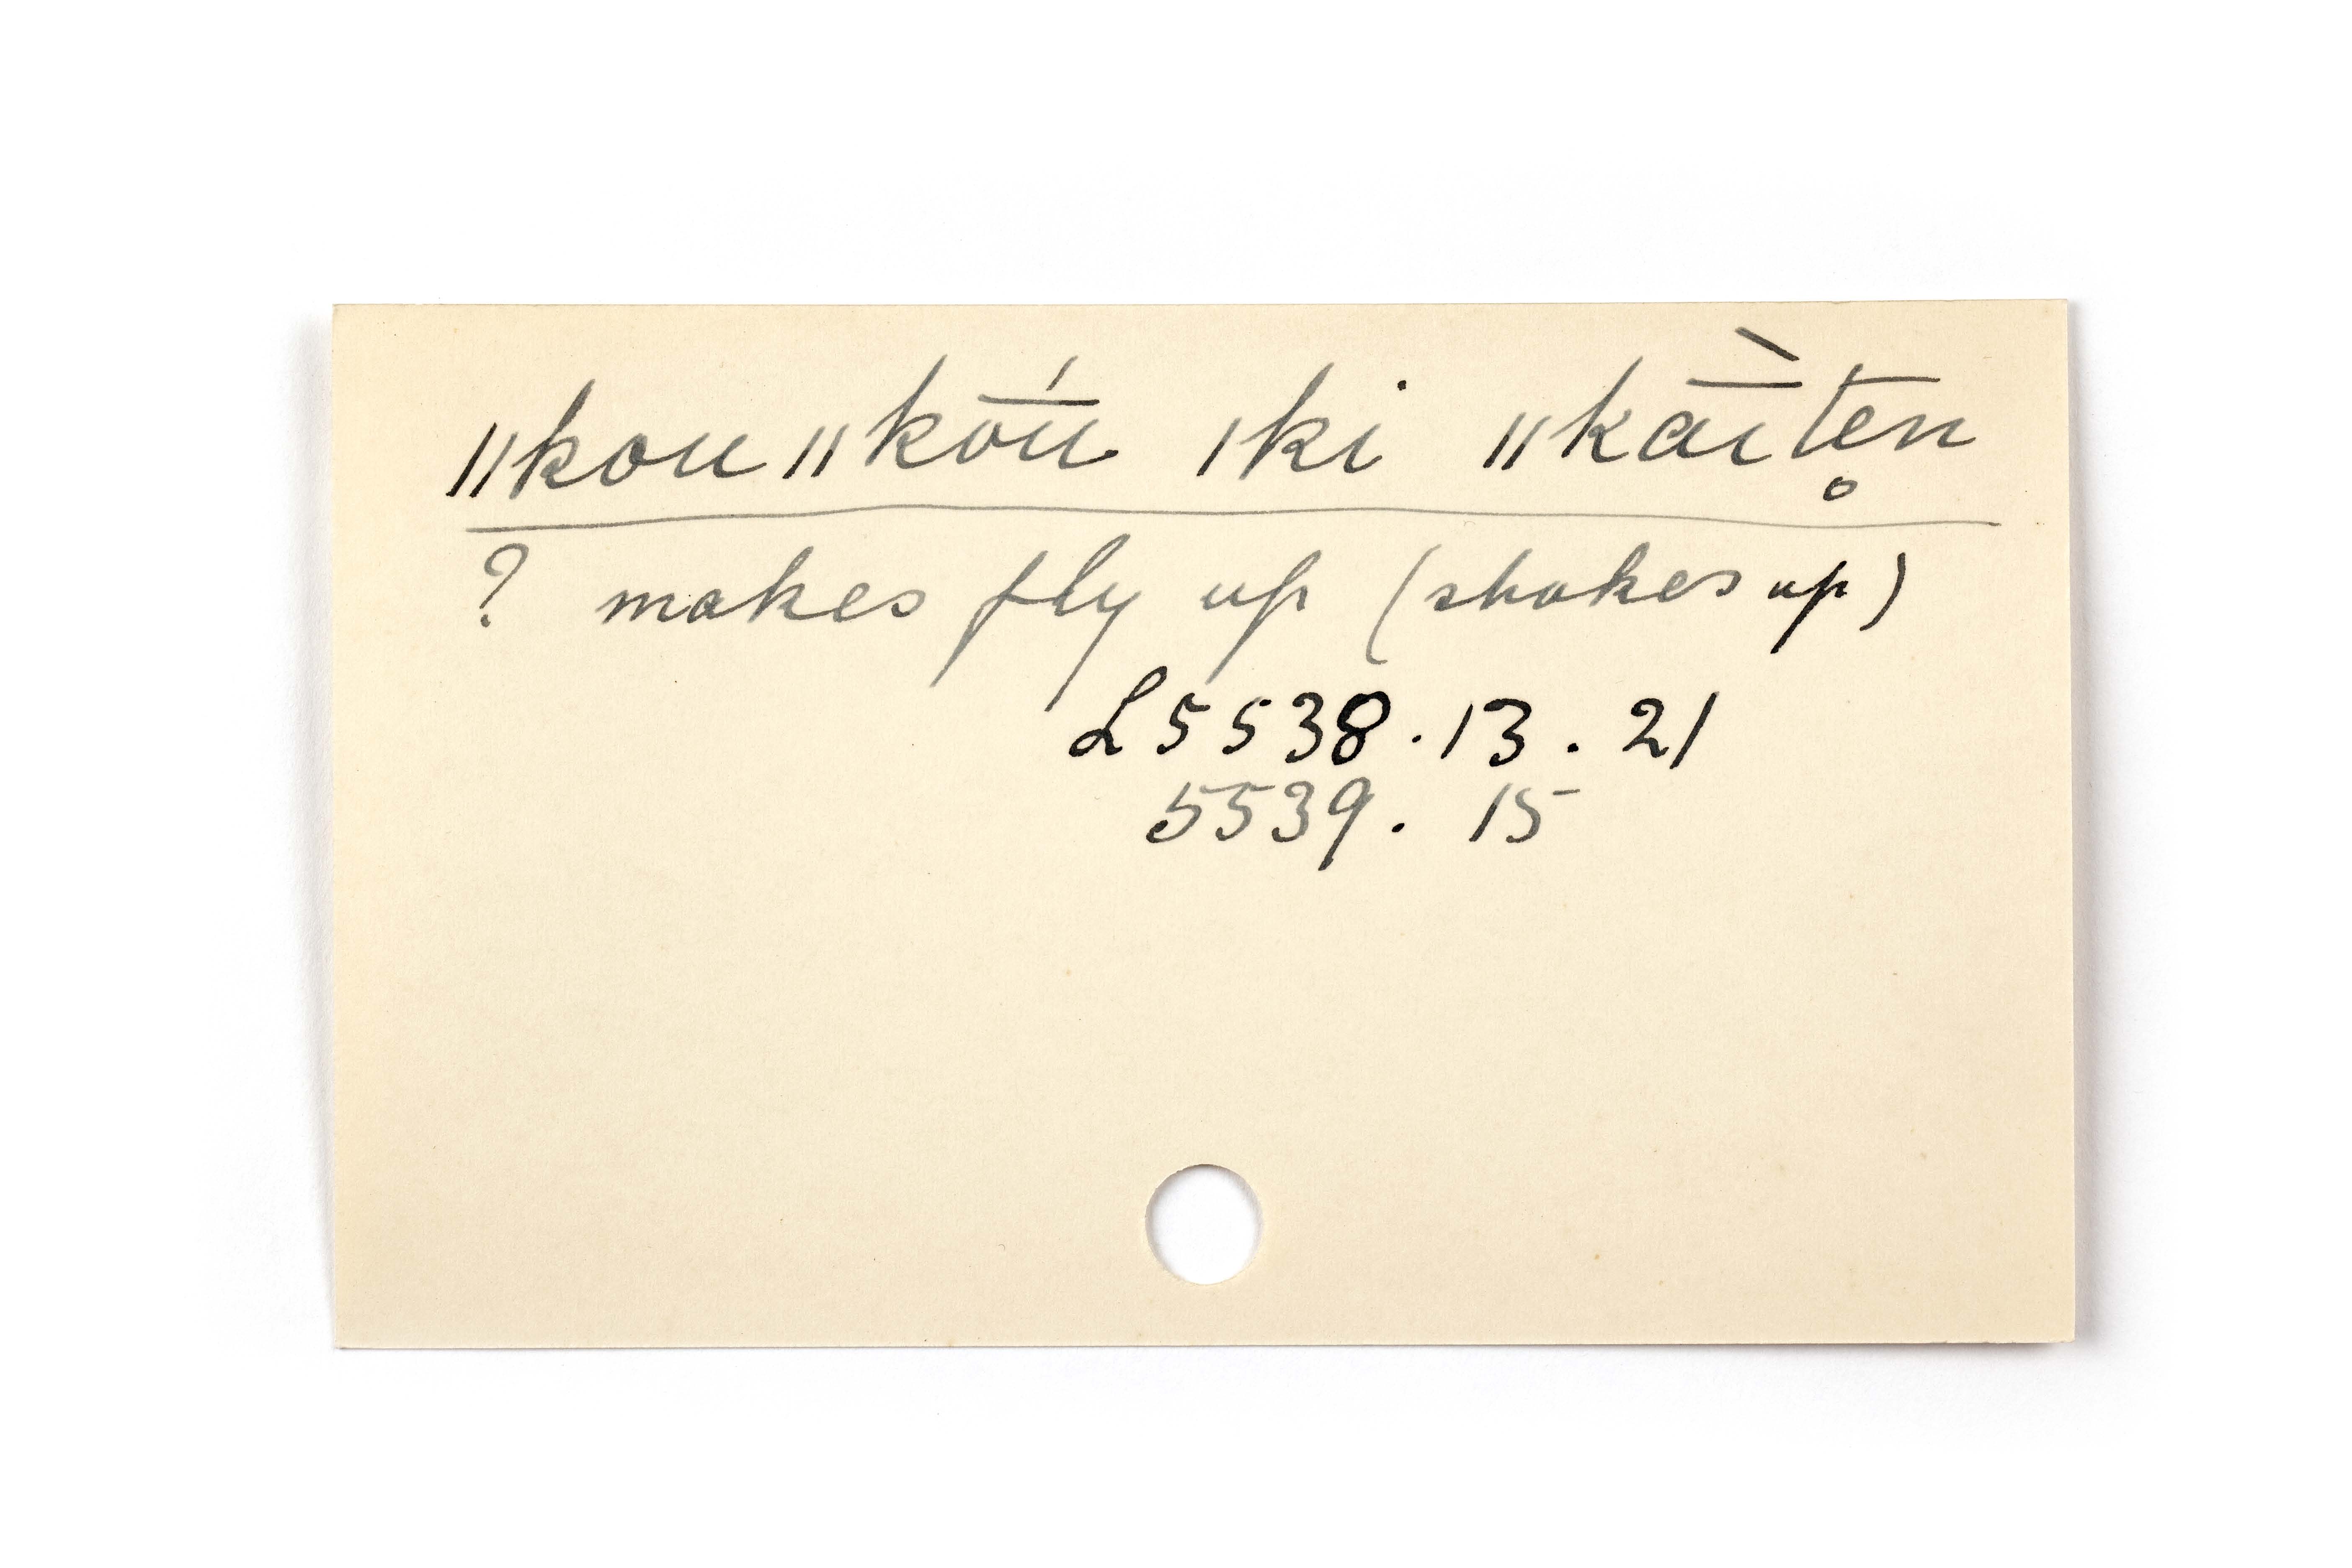 ǁkouǁkōú ǀki ǁkāìten̥
? makes fly up (shakes up)
L5538.13.21
5539.15